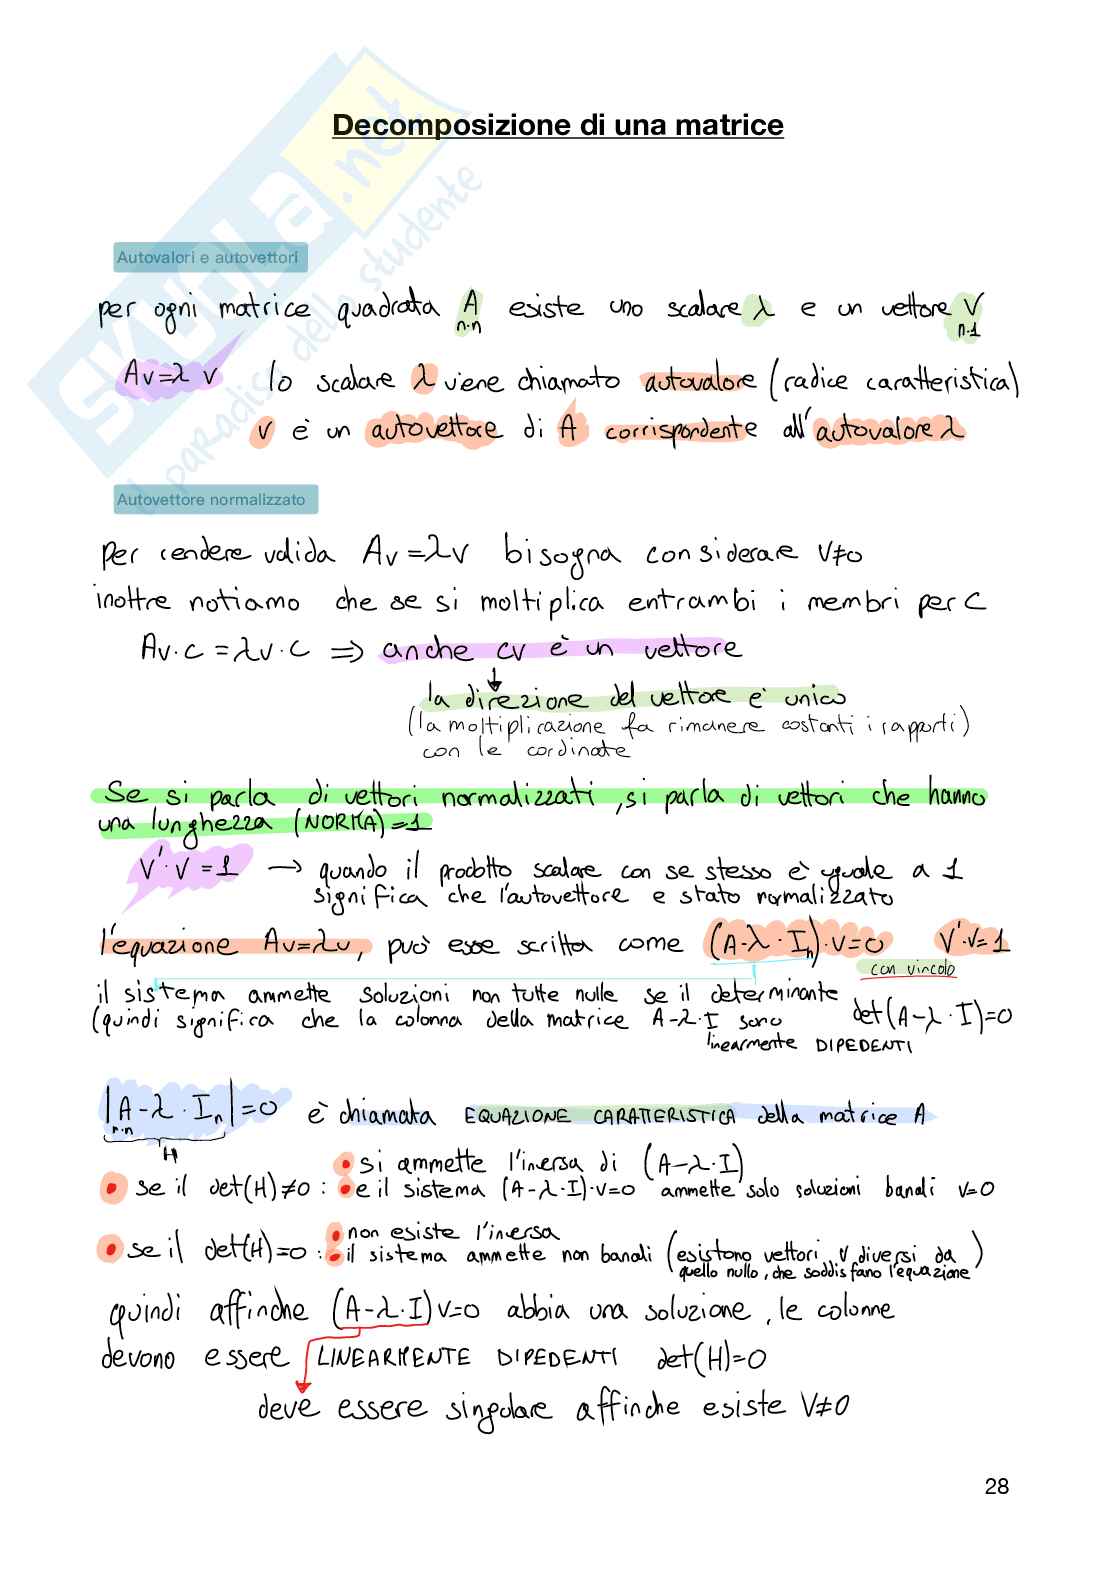 SKUOLA.net
il paradiso dello studente
Decomposizione di una matrice
Autovalori e autovettori
per ogni matrice quadrata A esiste uno scalare λ e un vettore V
n·n n·1
Av=λ v lo scalare λ viene chiamato autovalore (radice caratteristica)
v è un autovettore di A corrispondente all'autovalore λ
Autovettore normalizzato
per rendere valida Av=λv bisogna considerare V≠0
inoltre notiamo che se si moltiplica entrambi i membri per C
Av·c = λv·c ⇒ anche cv è un vettore
la direzione del vettore è unico
(la moltiplicazione fa rimanere costanti i rapporti)
con le cordinate
Se si parla di vettori normalizzati, si parla di vettori che hanno
una lunghezza (NORMA)=1
V'·V=1 → quando il prodotto scalare con se stesso è uguale a 1
significa che l'autovettore e stato normalizzato
l'equazione Av=λv, può esse scritta come (A-λ·In)·v=0 V'·V=1
con vincolo
il sistema ammette soluzioni non tutte nulle se il determinante
(quindi significa che la colonna della matrice A-λ·I sono det(A-λ·I)=0
linearmente DIPEDENTI
|A-λ·In|=0 è chiamata EQUAZIONE CARATTERISTICA della matrice A
n·n
H
• si ammette l'inversa di (A-λ·I)
• se il det(H)≠0: • e il sistema (A-λ·I)·v=0 ammette solo soluzioni banali v=0
• non esiste l'inversa
• se il det(H)=0: • il sistema ammette non banali (esistono vettori V diversi da
quello nullo, che soddisfano l'equazione)
quindi affinche (A-λ·I)v=0 abbia una soluzione, le colonne
devono essere LINEARMENTE DIPEDENTI det(H)=0
deve essere singolare affinche esiste V≠0
28